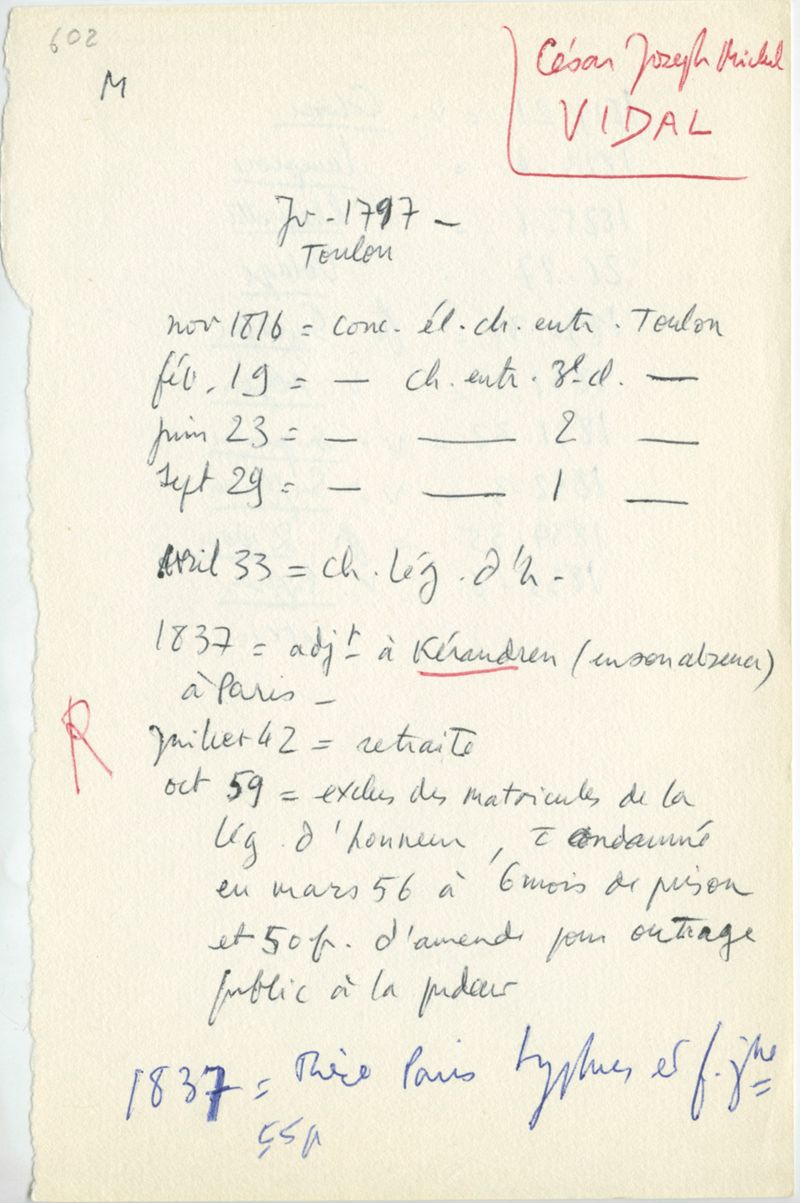 602
M
César Joseph Michel
VIDAL
Jv - 1797 -
Toulon
nov 1816 = conc. él. ch. entr. Toulon
fév. 19 = — ch. entr. 3e cl. —
juin 23 = — — 2 —
Sept 29 = — — 1 —
Avril 33 = ch. lég. d'h -
1837 = adjt à Kérandren (en son absence)
à Paris -
R
Juillet 42 = retraite
oct 59 = exclus des matricules de la
lég. d'honneur, condamné
en mars 56 à 6 mois de prison
et 50 fr. d'amende pour outrage
public à la pudeur
1837 = Thèse Paris typhus et f. jne
55p